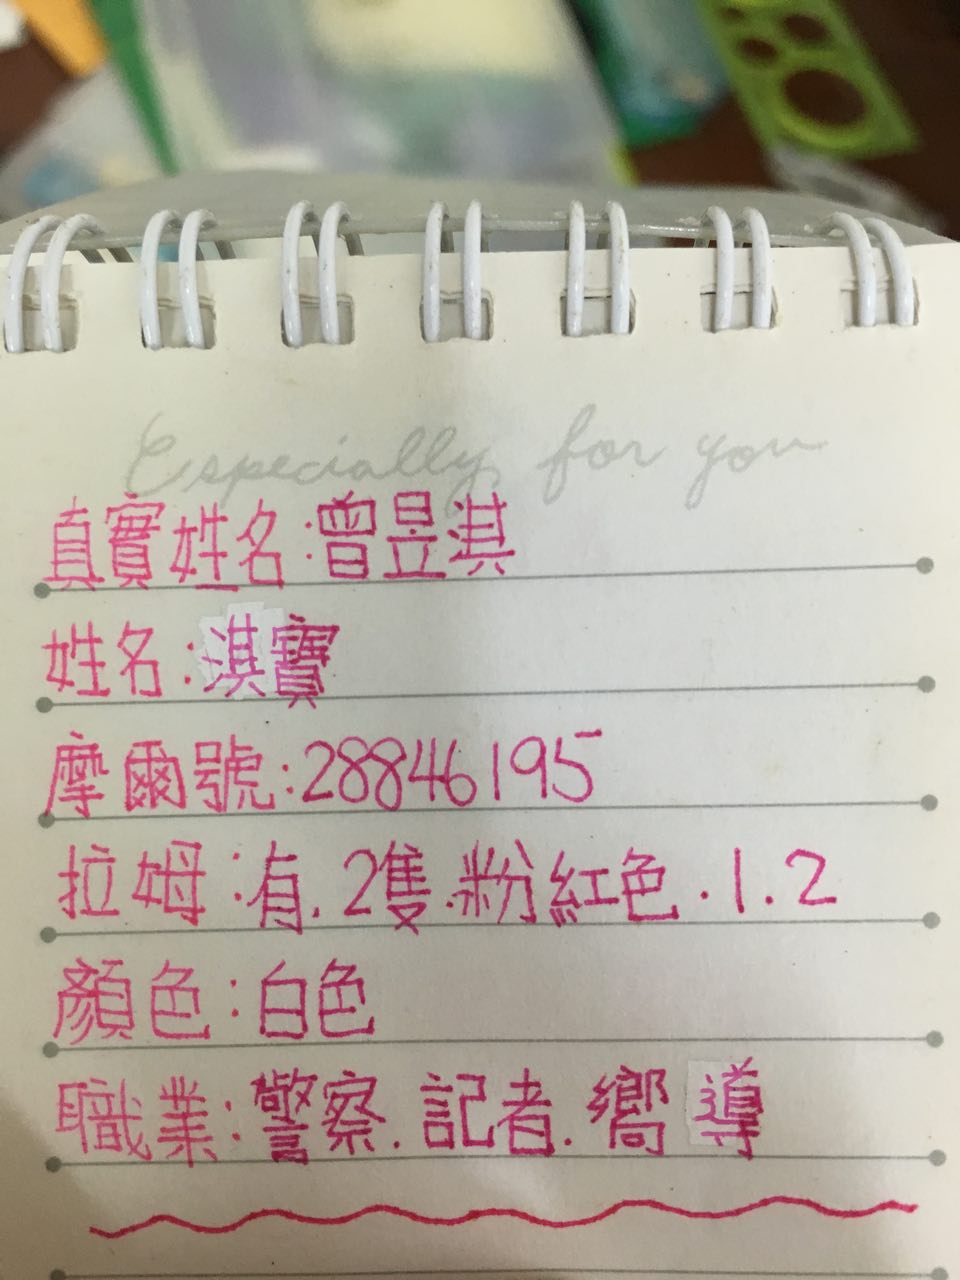 Especially for you
真實姓名:曾昱淇
姓名:淇寶
摩爾號:28846195
拉姆:有.2隻.粉紅色.1.2
顏色:白色
職業:警察.記者.嚮導